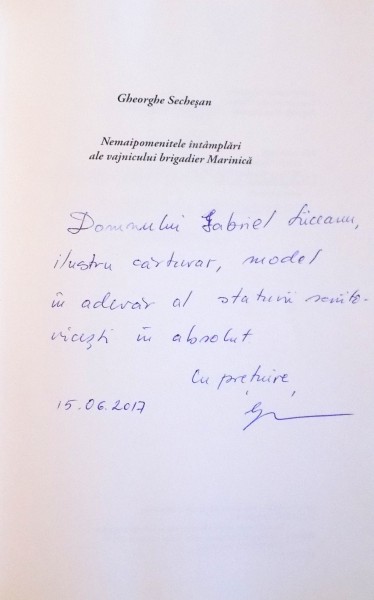 Gheorghe Secheșan
Nemaipomenitele întâmplări
ale vajnicului brigadier Marinică
Domnului Gabriel Liiceanu,
ilustru cărturar, model
în adevăr al staturii
în absolut
Cu prețuire,
15.06.2017